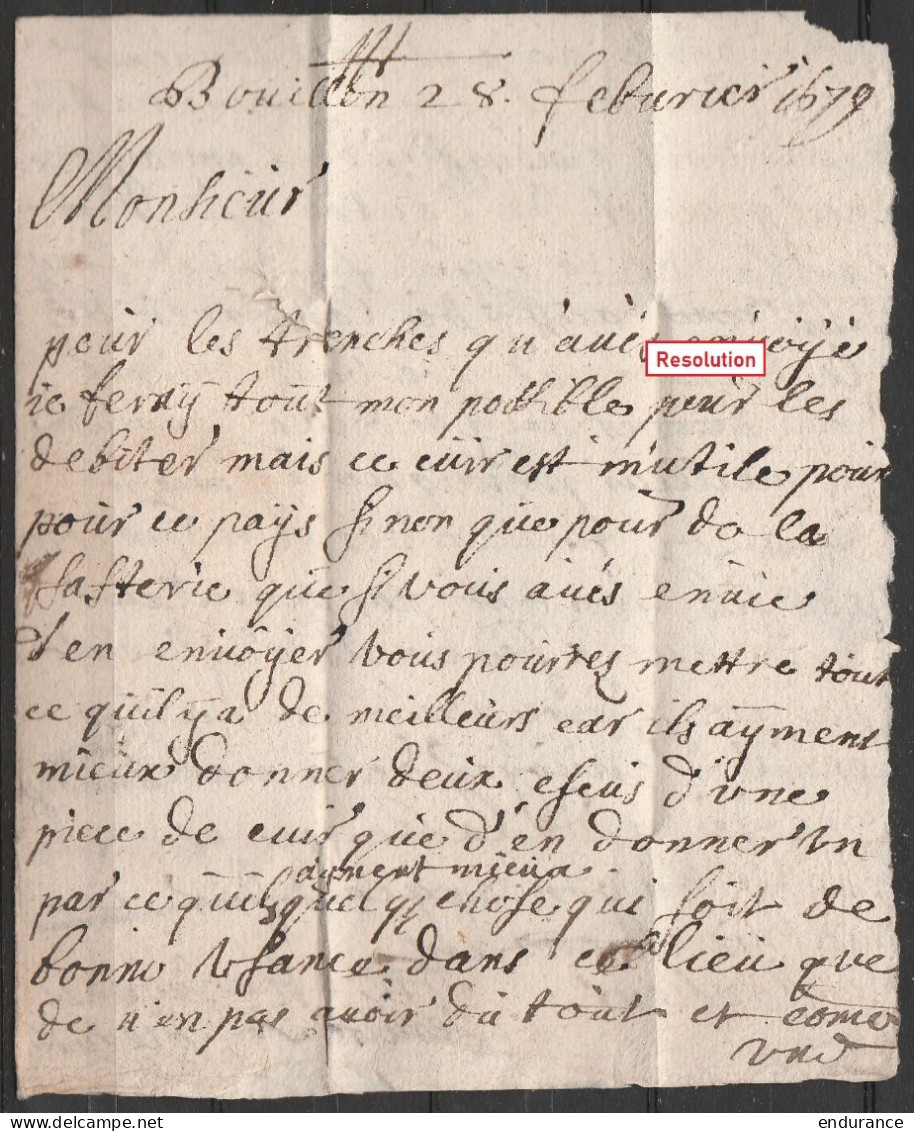 Bouillon 28. feburier 1679
Monsieur
pour les trenches qu'avés envoÿé
Resolution
ie feraÿ tout mon possible pour les
debiter mais ce cuir est inutile pour
pour ce paÿs sinon que pour de la
que si vous avés envie
d'en envoÿer vous pourres mettre tout
ce quil ÿ a de meilleurs car ils aÿment
mieux donner deux escus d'une
piece de cuir que d'en donner un
aÿment mieux
par ce quils quelq chose qui soit de
bonne usance dans ce lieu que
de n'en pas avoir du tout et come
une
endurance